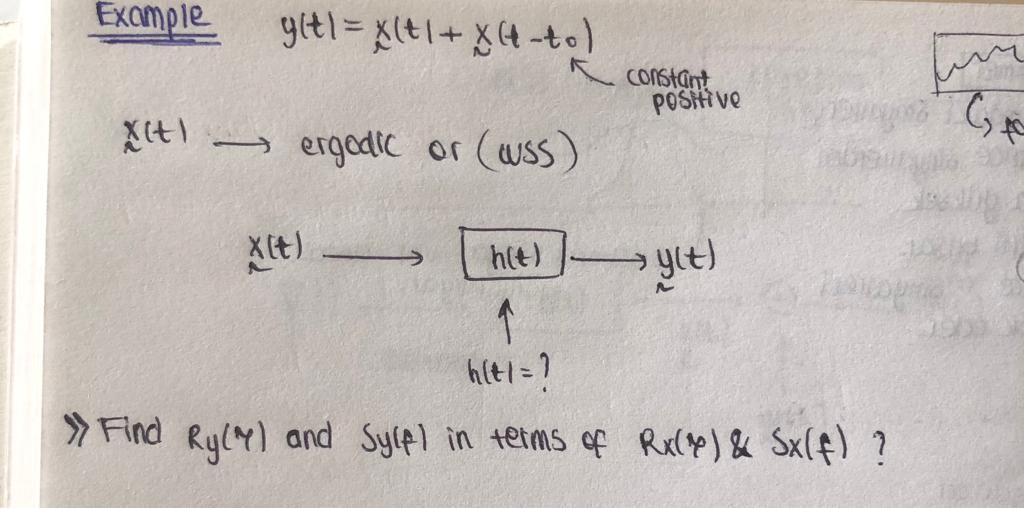 Example y(t) = x(t) + x(t - t₀)
constant
positive
x(t) → ergodic or (WSS)
x(t) → h(t) → y(t)
h(t) = ?
>> Find Ry(τ) and Sy(f) in terms of Rx(τ) & Sx(f) ?